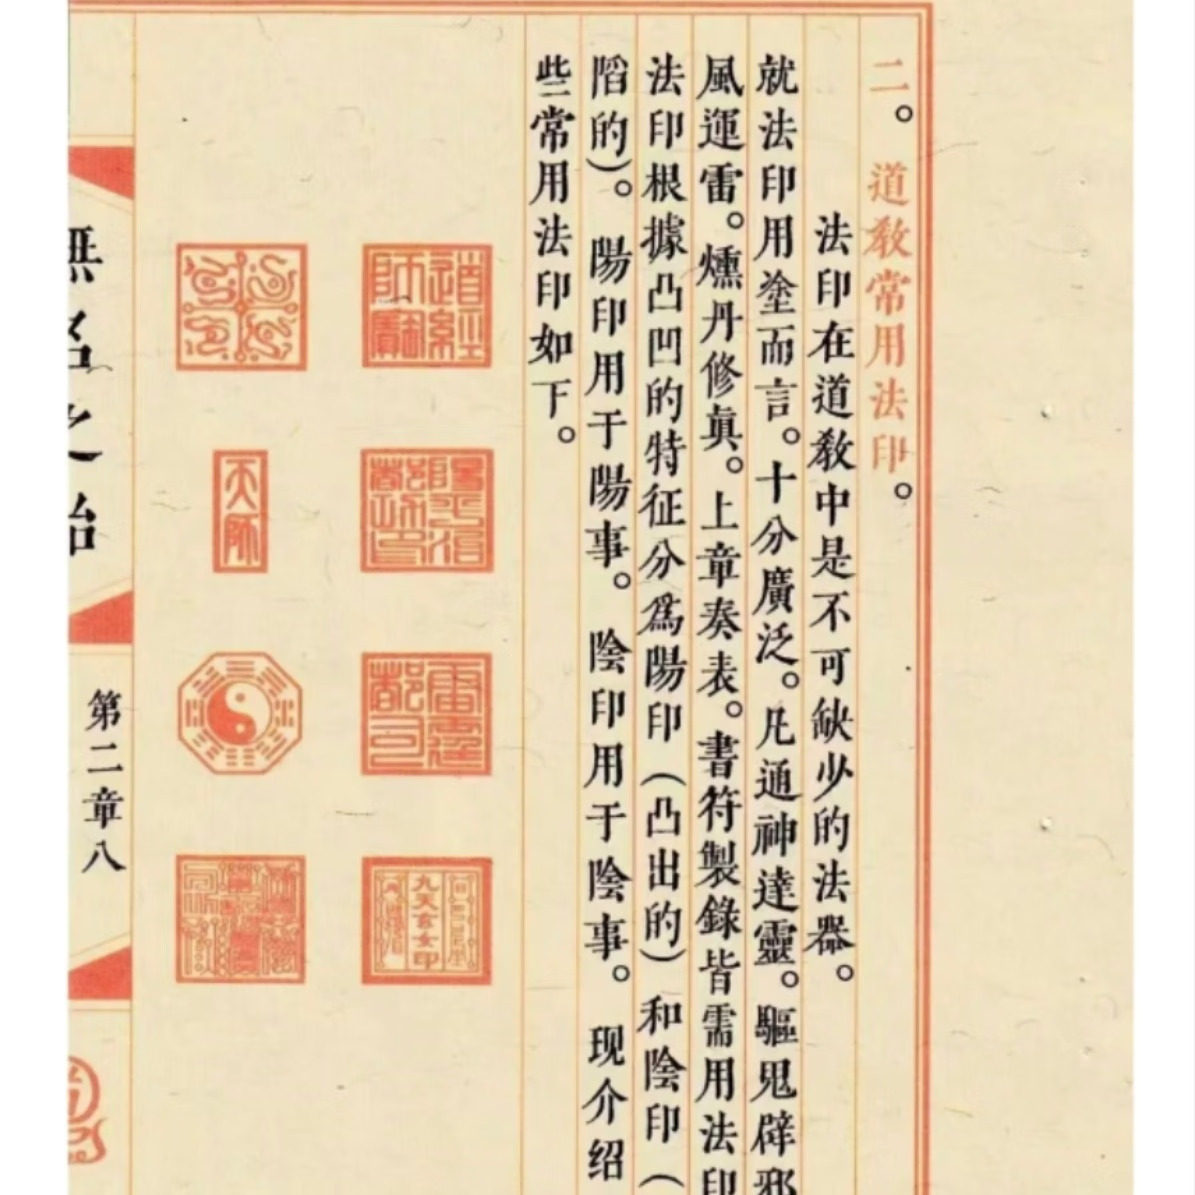 二。道教常用法印。
法印在道教中是不可缺少的法器。
就法印用塗而言。十分廣泛。凡通神達靈。驅鬼辟邪
風運雷。燻丹修真。上章奏表。書符製錄皆需用法印
法印根據凸凹的特征分爲陽印（凸出的）和陰印（
陷的）。陽印用于陽事。陰印用于陰事。现介绍
些常用法印如下。
道經師寶
陽平治都功印
雷霆都司
九天玄女印
天師
無名之始
第二章八